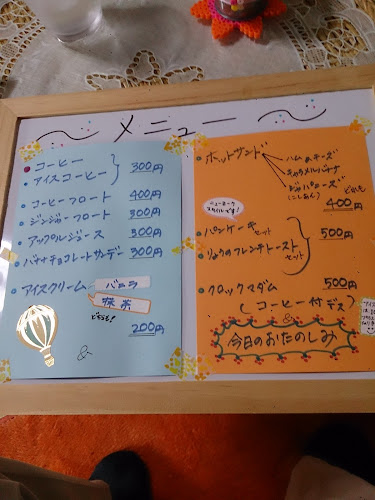 メニュー
コーヒー
アイスコーヒー 300円
コーヒーフロート 400円
ジンジャーフロート 300円
アップルジュース 300円
バナナチョコレートサンデー 300円
アイスクリーム バニラ
抹茶
どちらも! 200円
&
ホットサンド ハム&チーズ
キャラメルバナナ
(こしあん) どれも
400円
ニューヨークスタイルです!
パンケーキセット
フレンチトーストセット 500円
クロックマダム 500円
(コーヒー付デス)
&
今日のおたのしみ